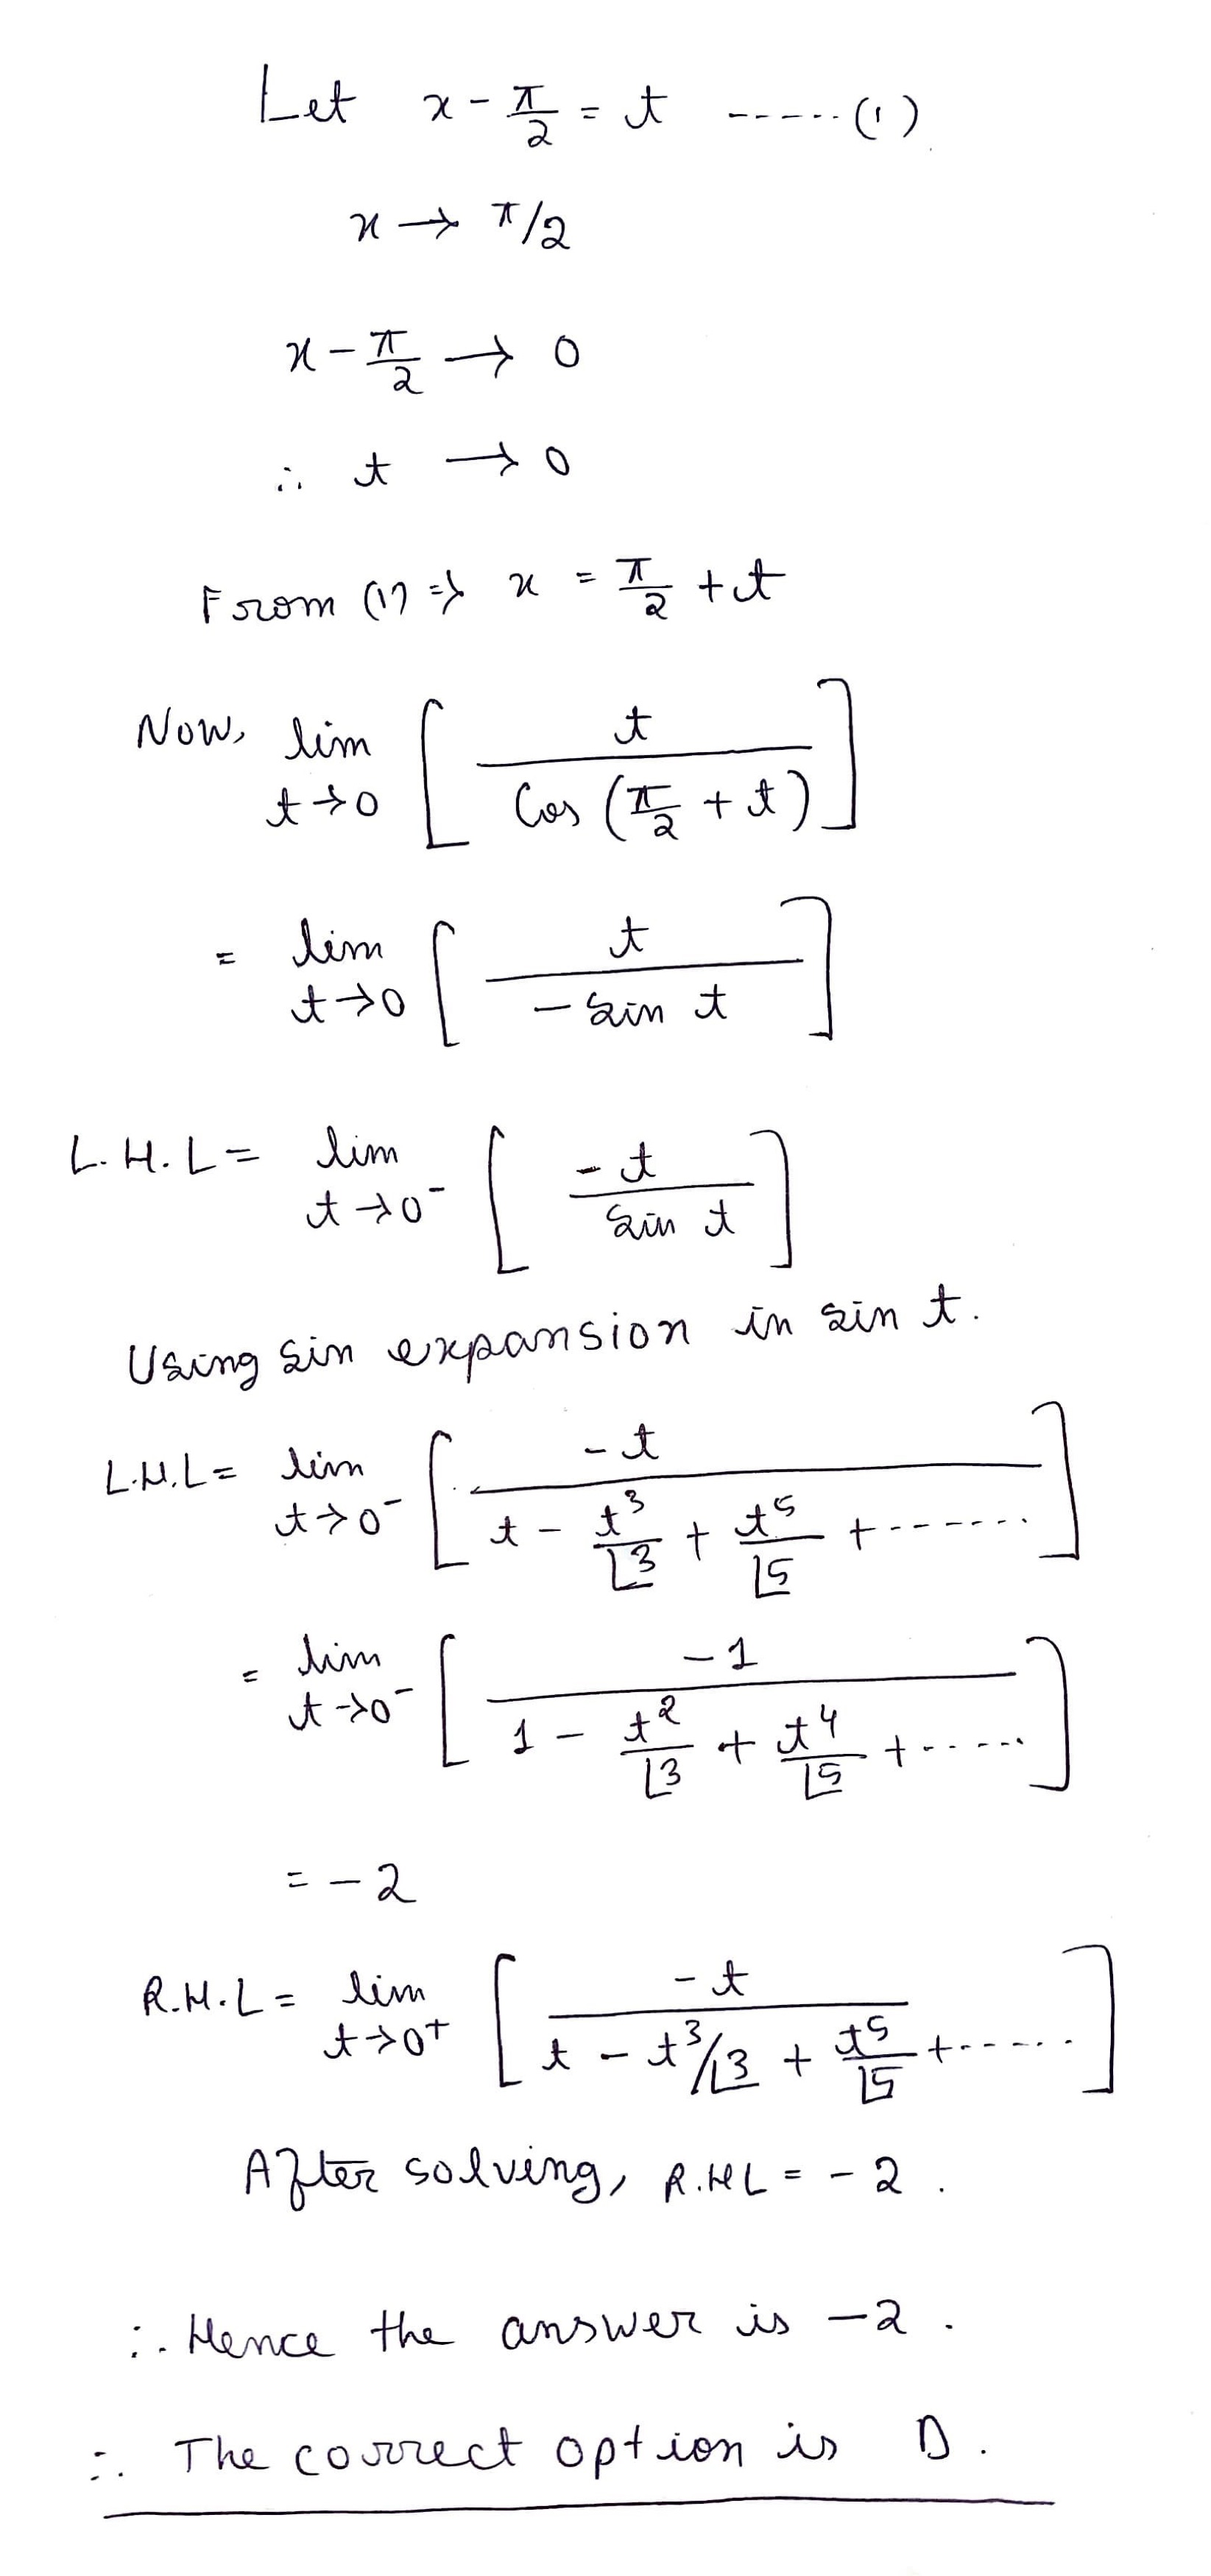 Let x - π/2 = t ------(1)
x → π/2
x - π/2 → 0
∴ t → 0
From (1) => x = π/2 + t
Now, lim t→0 [ t / Cos (π/2 + t) ]
= lim t→0 [ t / - sin t ]
L.H.L = lim t→0⁻ [ -t / sin t ]
Using sin expansion in sin t.
L.H.L = lim t→0⁻ [ -t / t - t³/⌊3 + t⁵/⌊5 + ------- ]
= lim t→0⁻ [ -1 / 1 - t²/⌊3 + t⁴/⌊5 + ------ ]
= -2
R.H.L = lim t→0⁺ [ -t / t - t³/⌊3 + t⁵/⌊5 + ------ ]
After solving, R.H.L = -2 .
∴ Hence the answer is -2 .
∴ The correct option is D .